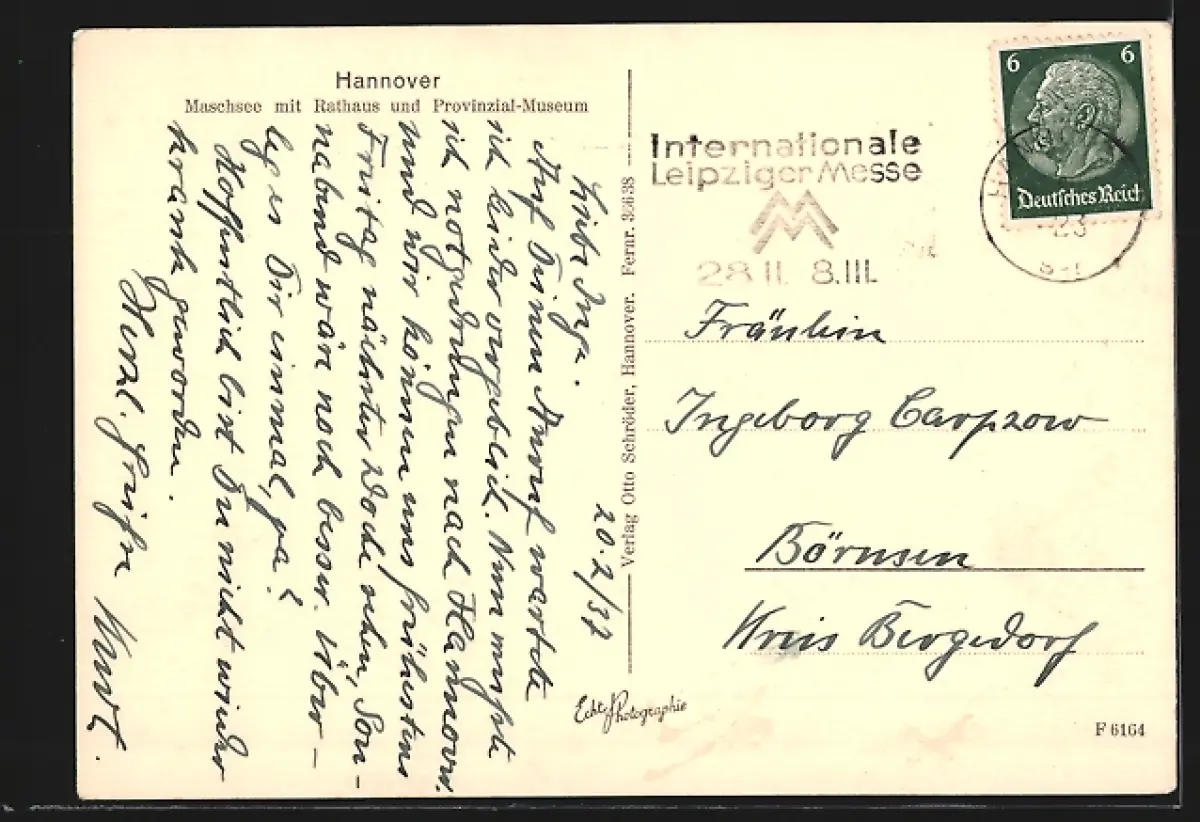 Hannover
Maschsee mit Rathaus und Provinzial-Museum
20.2/37
Liebe Inge.
Auf Deinen Anruf wartete
ich leider vergeblich. Nun mußte
ich notgedrungen nach Hannover
und wir können uns frühestens
Freitag nächster Woche sehen, Son-
nabend wäre noch besser. Über-
leg es Dir einmal, ja?
Hoffentlich bist Du nicht wieder
krank geworden.
Herzl. Grüße Kurt.
Verlag Otto Schröder, Hannover. Fernr. 35638
Echte Photographie
Internationale
Leipziger Messe
28 II. 8.III.
6 6
Deutsches Reich
23
Fräulein
Ingeborg Carpzow
Börnsen
Kreis Bergedorf
F 6164